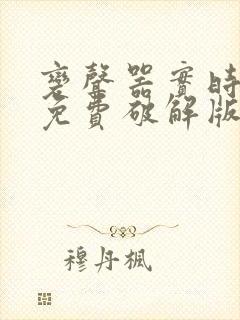 变聲器實時
免費破解版
穆丹楓